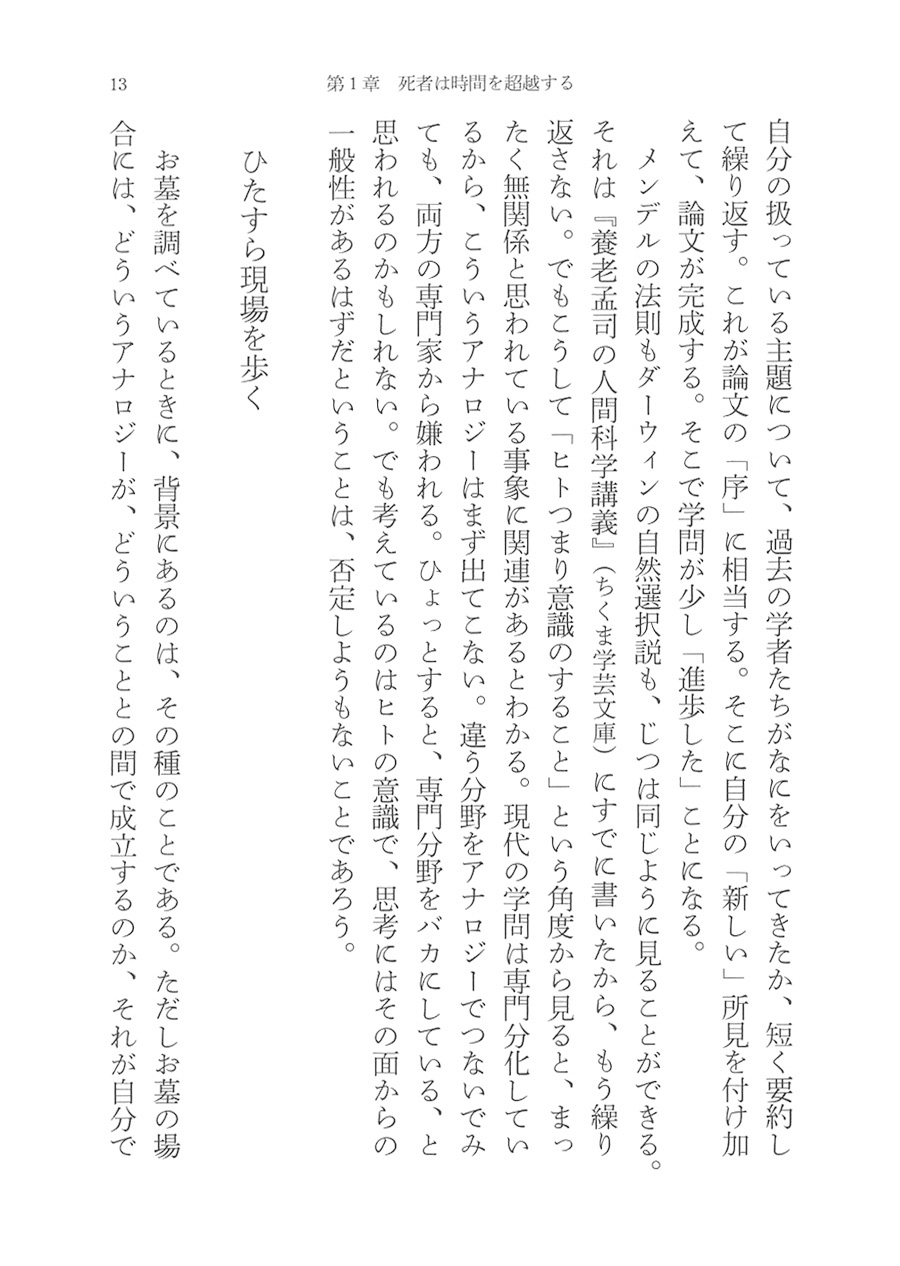 13
第1章　死者は時間を超越する
自分の扱っている主題について、過去の学者たちがなにをいってきたか、短く要約し
て繰り返す。これが論文の「序」に相当する。そこに自分の「新しい」所見を付け加
えて、論文が完成する。そこで学問が少し「進歩した」ことになる。
　メンデルの法則もダーウィンの自然選択説も、じつは同じように見ることができる。
それは『養老孟司の人間科学講義』（ちくま学芸文庫）にすでに書いたから、もう繰り
返さない。でもこうして「ヒトつまり意識のすること」という角度から見ると、まっ
たく無関係と思われている事象に関連があるとわかる。現代の学問は専門分化してい
るから、こういうアナロジーはまず出てこない。違う分野をアナロジーでつないでみ
ても、両方の専門家から嫌われる。ひょっとすると、専門分野をバカにしている、と
思われるのかもしれない。でも考えているのはヒトの意識で、思考にはその面からの
一般性があるはずだということは、否定しようもないことであろう。
ひたすら現場を歩く
　お墓を調べているときに、背景にあるのは、その種のことである。ただしお墓の場
合には、どういうアナロジーが、どういうこととの間で成立するのか、それが自分で